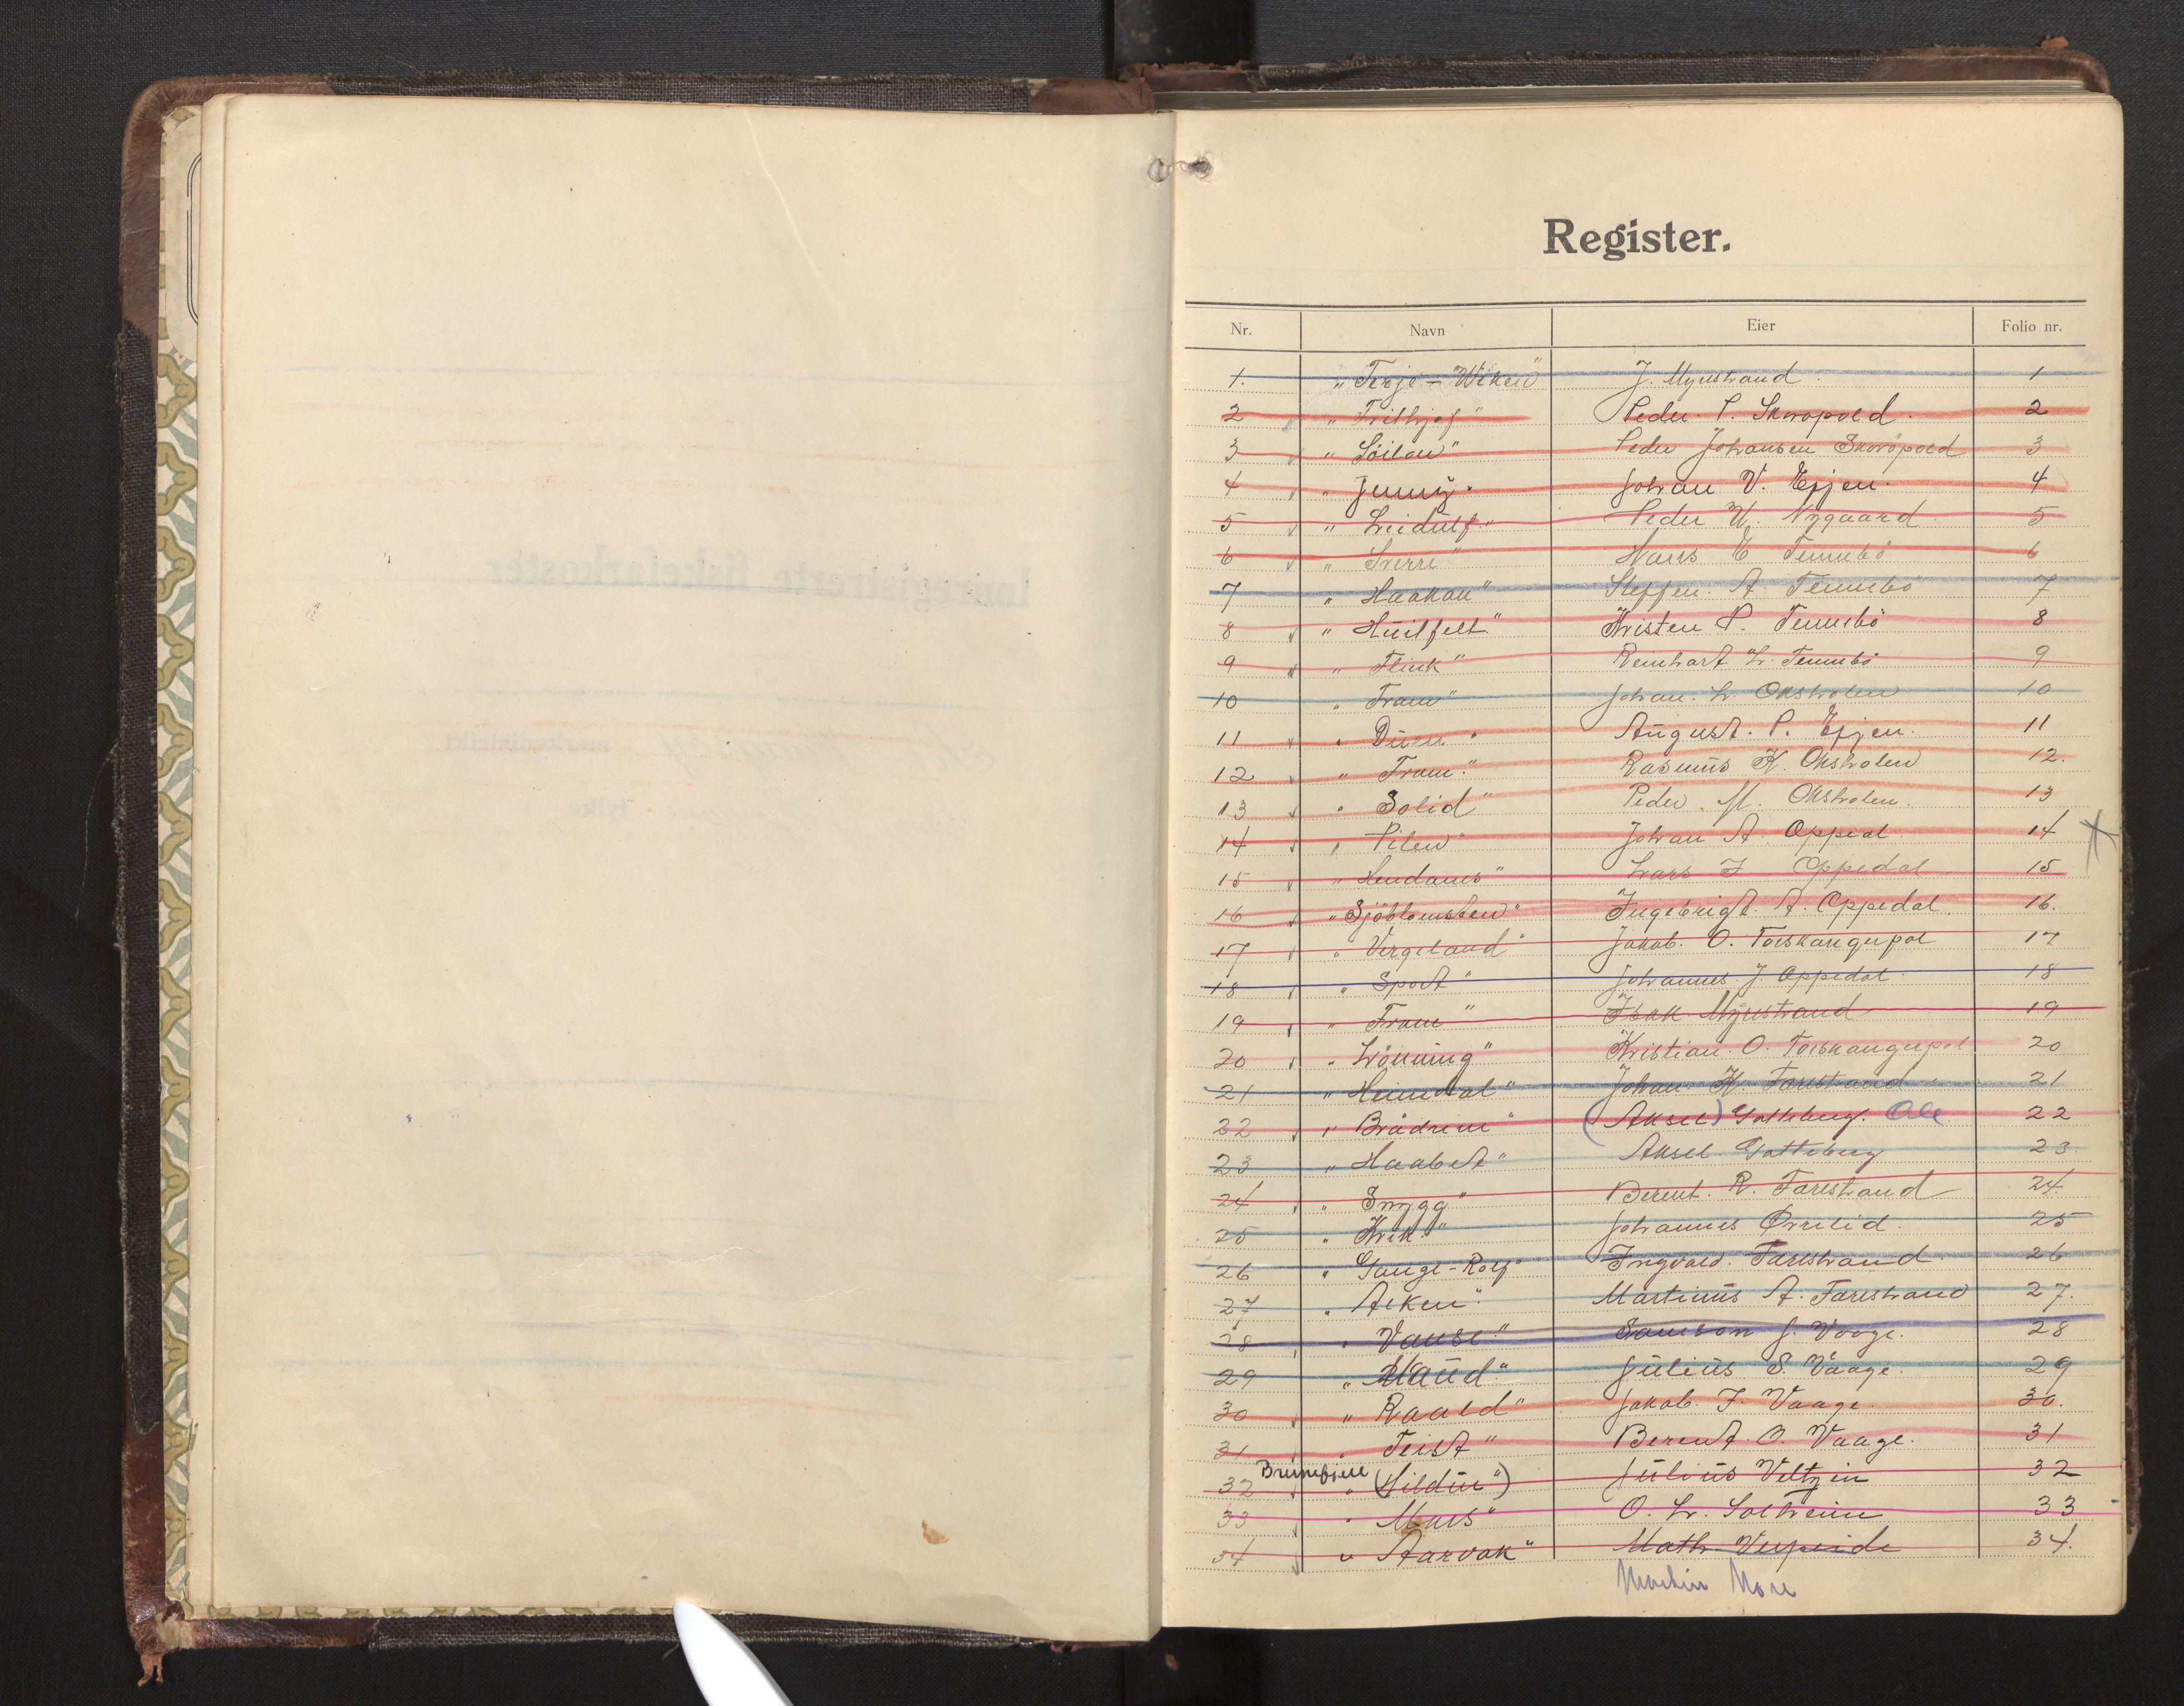 Register.
Nr. Navn Eier Folio nr.
1. „Terje-Wiken" J. Myrstrand. 1
2 „Frithjof" Peder P. Skorøpold. 2
3 „Söilan" Peder Johansen Skoröpold 3
4 „Jenny" Johan V. Eijen. 4
5 „Leidulf" Peder N. Nygaard 5
6 „Sverre" Hans E Tennebö 6
7 „Haakon" Steffen. A. Tennebö 7
8 „Huilfelt" Kristen P. Tennebö 8
9 „Flink" Reinhart L. Tennebö 9
10 „Fram" Johan. L. Oksholen 10
11 „Duen" August. P. Eijen. 11
12 „Fram." Rasmus K. Oksholen 12.
13 „Solid" Peder. M. Oksholen. 13
14 „Pilen" Johan A. Oppedal 14
15 „Hendanes" Lars J Oppedal 15
16 „Sjöblomsten" Ingebrigt. A. Oppedal. 16.
17 „Vergeland" Jakob. O. Torskangerpol 17
18 „Spodt" Johannes J Oppedal. 18
19 „Fram" Isak Myrstrand 19
20 „Lönning" Kristian. O. Torskangerpol 20
21 „Heimdal" Johan. K. Farestrand 21
22 „Brødrene" (Aksel) Gotteberg. Ole 22
23 „Haabet" Aksel Gotteberg 23.
24 „Snygg" Berent. R. Farestrand 24.
25 „Krek" Johannes Ørrelid. 25
26 „Gange-Rolf" Ingvald. Farestrand 26
27 „Alken". Martinus A. Farestrand 27.
28 „Vause" Samson J. Vaage. 28
29 „Maud" Julius S. Vaage. 29
30 „Roald" Jakob. J. Vaage. 30.
31 „Teist" Berent. O. Vaage. 31
Brunefjell
32 „(Hildur") Julius Veltzin 32
33 „Mars" O. L. Solheim 33
34 „Aarvak" Math Verpeide 34.
Martin More